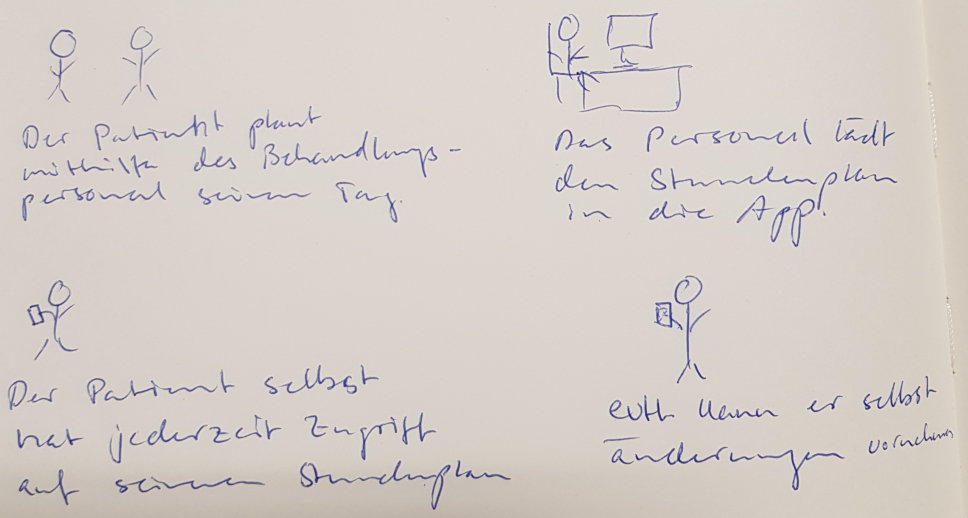 Der Patient plant
mithilfe des Behandlungs-
personal seinen Tag.
Das Personal lädt
den Stundenplan
in die App!
Der Patient selbst
hat jederzeit Zugriff
auf seinen Stundenplan
evtl kann er selbst
änderungen vornehmen